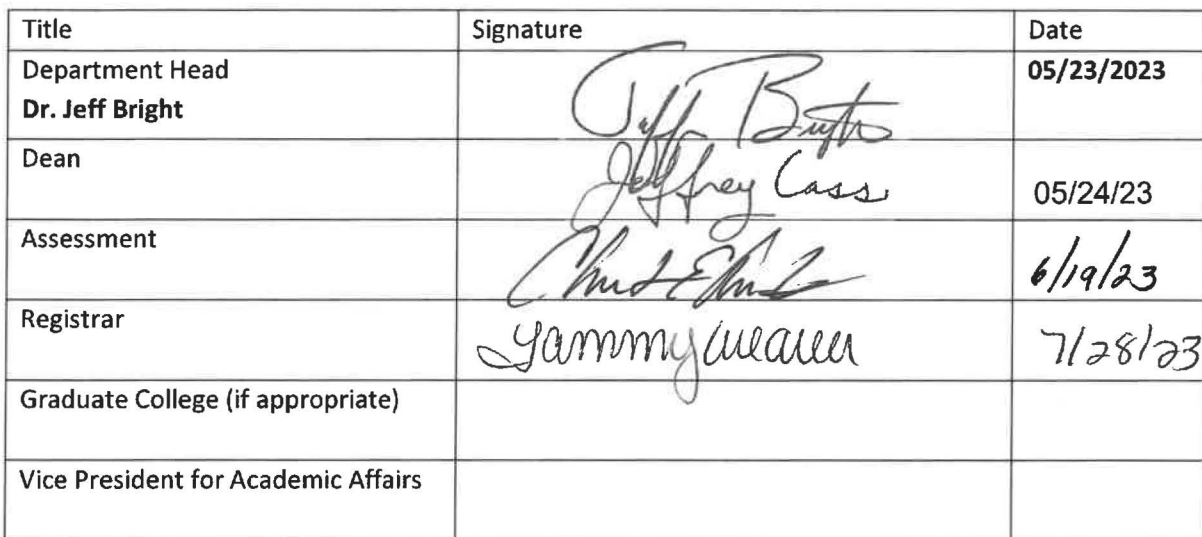 Title Signature Date
Department Head 05/23/2023
Dr. Jeff Bright Jeff Bright
Dean Jeffrey Cass 05/24/23
Assessment 6/19/23
Registrar Tammy Weaver 7/28/23
Graduate College (if appropriate)
Vice President for Academic Affairs